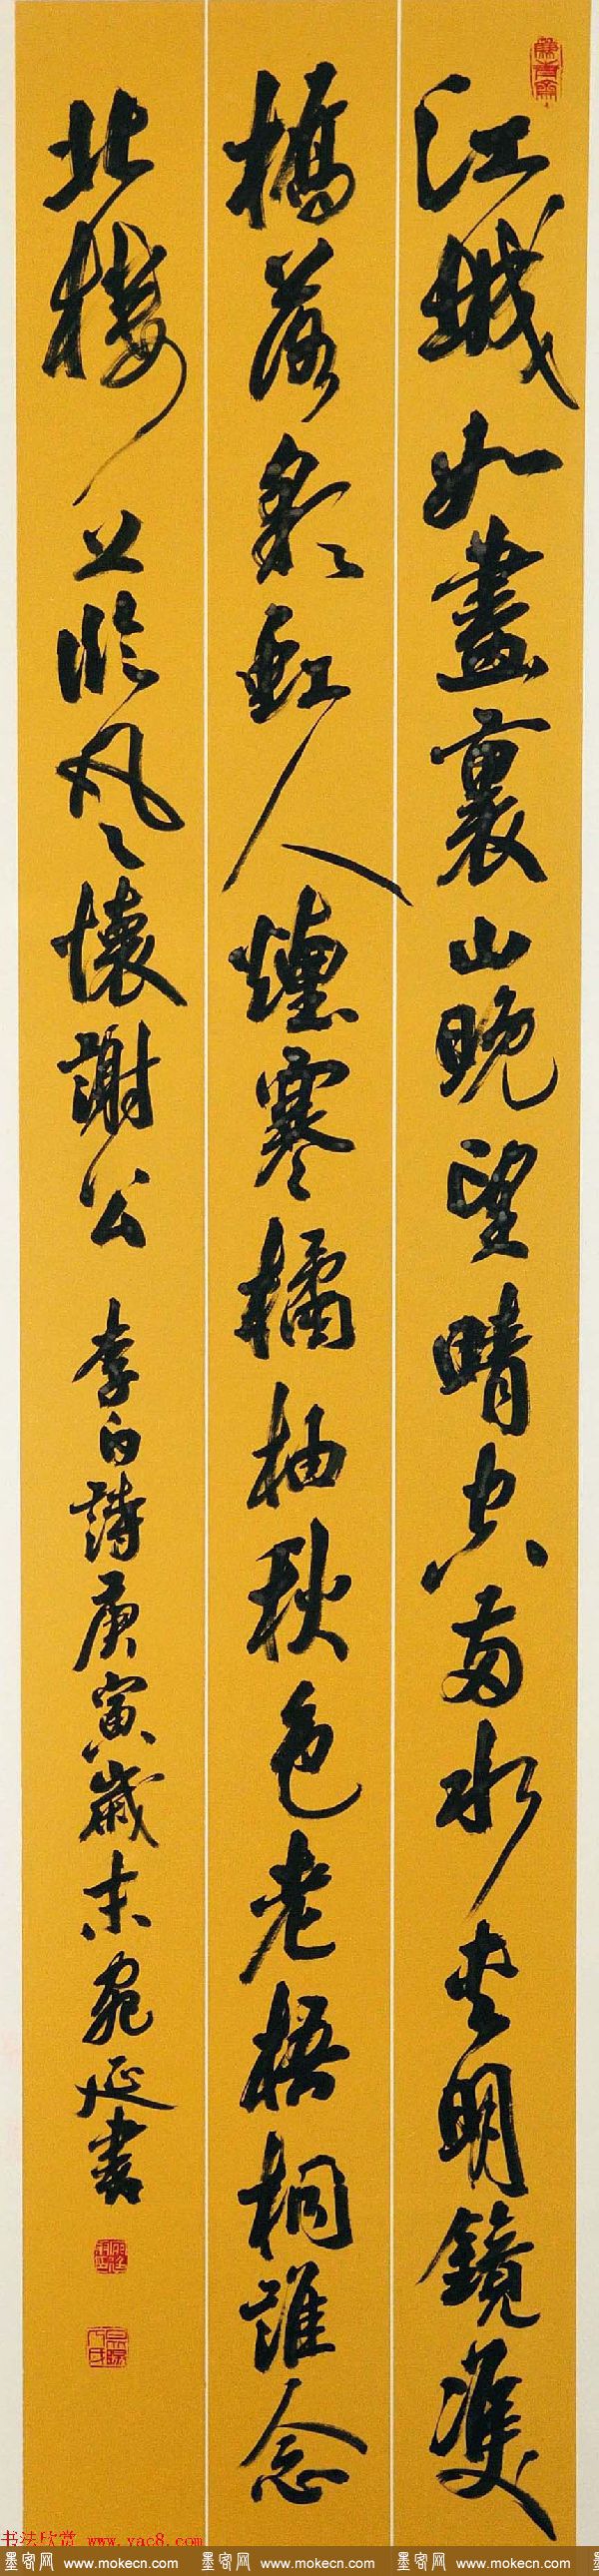 江城如畫裏山晚望晴空兩水夾明鏡雙
橋落彩虹人煙寒橘柚秋色老梧桐誰念
北樓上臨風懷謝公 李白詩庚寅歲末宛延書
书法欣赏 www.yac8.com
墨客网 www.mokecn.com 墨客网 www.mokecn.com 墨客网 www.mokecn.com